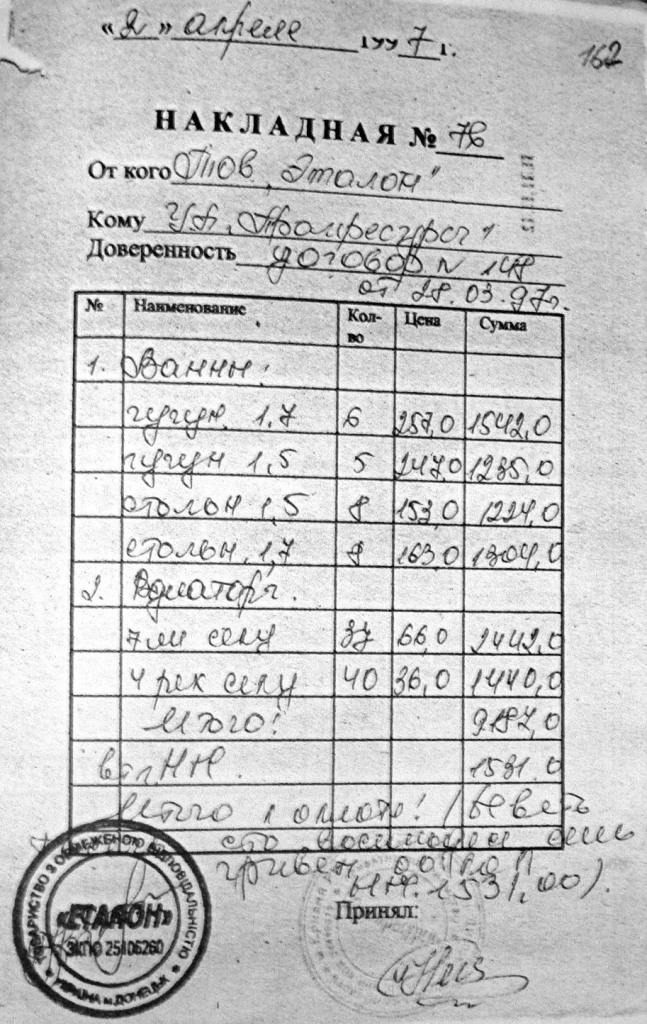 "2" апреля 1997 г.
162
НАКЛАДНАЯ № 76
От кого Тов "Эталон"
Кому ЧП
Доверенность договор N 148
от 28.03.97г.
№ Наименование Кол-во Цена Сумма
1. Ванны:
чугун. 1,7 6 257,0 1542,0
чугун 1,5 5 247,0 1235,0
стальн 1,5 8 153,0 1224,0
стальн. 1,7 8 163,0 1304,0
2. Радиаторы.
7ми секц 37 66,0 2442,0
4 рех секц 40 36,0 1440,0
Итого! 9187,0
в т.ч. 1531,0
Итого к оплате! (Девять
сто восемьдесят семь
гривен 00
1531,00).
Принял:
ТОВАРИСТВО З ОБМЕЖЕНОЮ ВІДПОВІДАЛЬНІСТЮ
«ЕТАЛОН»
ЗКПО 25106260
УКРАЇНА м. ДОНЕЦЬК